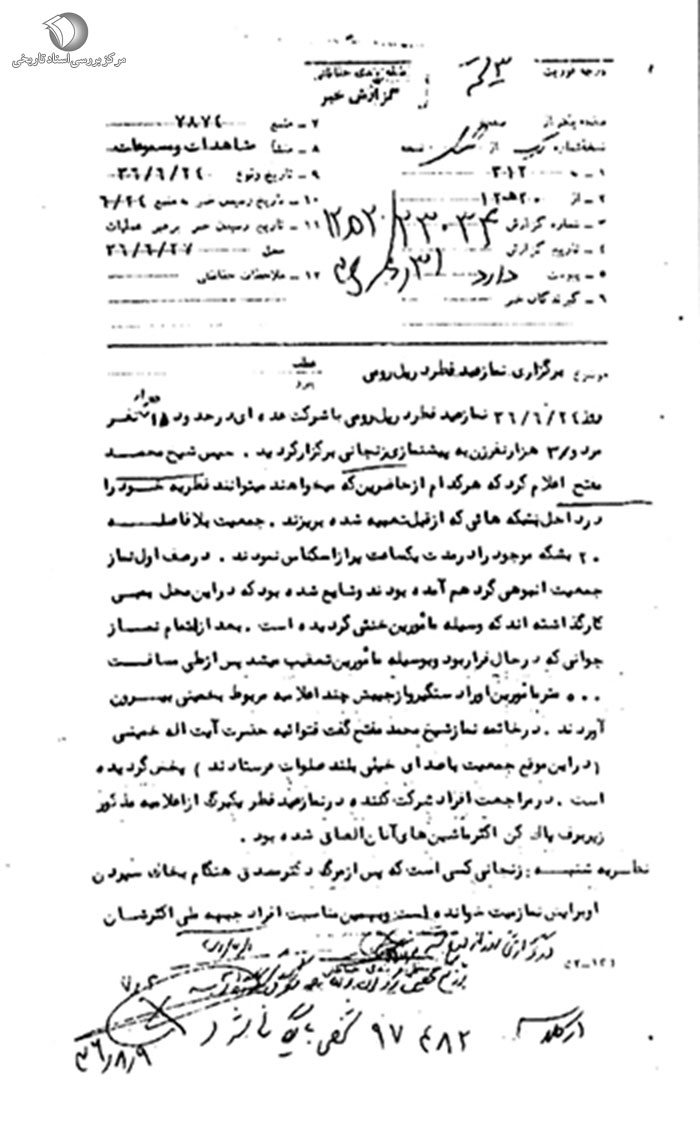 مرکز بررسی اسناد تاریخی
درجه فوریت
طبقه بندی حفاظتی
گزارش خبر
صفحه یکم از صفحه
نسخه شماره یک از نسخه
۱ - به ۳۱۲
۲ - از ۲۰ ه ۱۲
۳ - شماره گزارش
۴ - تاریخ گزارش
۵ - پیوست دارد
۶ - گیرندگان خبر
۷ - منبع ۷۸۷۴
۸ - منشأ مشاهدات و مسموعات
۹ - تاریخ وقوع ۳۶/۶/۲۴
۱۰ - تاریخ رسیدن خبر به منبع ۶/۲۴
۱۱ - تاریخ رسیدن خبر به رهبر عملیات
محل ۳۶/۶/۲۷
۱۲ - ملاحظات حفاظتی
موضوع برگزاری نماز عید فطر در پل رومی
روز ۳۶/۶/۲۴ نماز عید فطر در پل رومی با شرکت عده ای در حدود ۱۵ هزار نفر
مرد و ۳ هزار نفر زن به پیشنمازی زنجانی برگزار گردید . سپس شیخ محمد
مفتح اعلام کرد که هر کدام از حاضرین که میخواهند میتوانند فطریه خود را
در داخل بشکه هائی که از قبل تعبیه شده بریزند . جمعیت بلافاصله
۲۰ بشکه موجود را در مدت یکساعت پر از اسکناس نمودند . در صف اول نماز
جمعیت انبوهی گرد هم آمده بودند و شایع شده بود که در این محل بمبی
کار گذاشته اند که وسیله مأمورین خنثی گردیده است . بعد از اتمام نماز
جوانی که در حال فرار بود و بوسیله مأمورین تعقیب میشد پس از طی مسافت
۵۰۰ متر مأمورین او را دستگیر و از جیبش چند اعلامیه مربوط بخمینی بیرون
آوردند . در خاتمه نماز شیخ محمد مفتح گفت فتوائیه حضرت آیت اله خمینی
( در این موقع جمعیت با صدای خیلی بلند صلوات فرستادند ) پخش گردیده
است . در مراجعت افراد شرکت کننده در نماز عید فطر یکبرگ از اعلامیه مذکور
زیر برف پاک کن اکثر ماشین های آنان الصاق شده بود .
نظریه شنبه : زنجانی کسی است که پس از مرگ دکتر مصدق هنگام بخاک سپردن
او برایش نماز میت خوانده است و بهمین مناسبت افراد جبهه ملی اکثرشان
۳۶/۸/۹